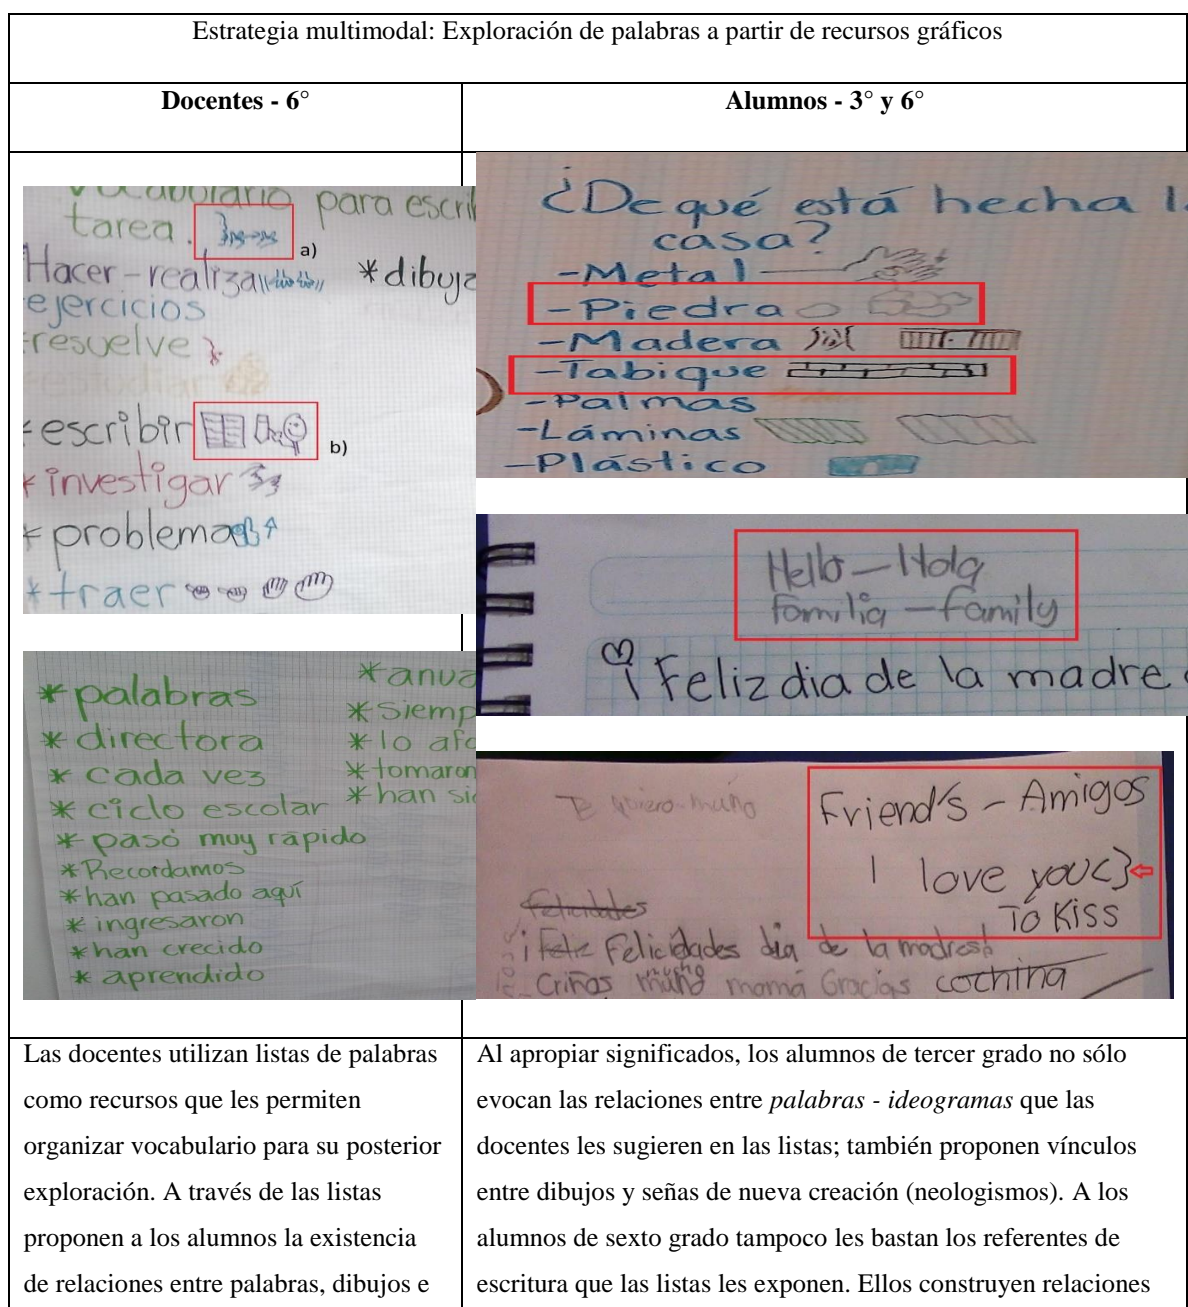 Estrategia multimodal: Exploración de palabras a partir de recursos gráficos
Docentes - 6°
Alumnos - 3° y 6°
vocabulario para escri
tarea.
a)
Hacer-realiza
*dibuja
ejercicios
resuelve
estudiar
*escribir
b)
*investigar
*problema
*traer
*palabras
*directora
*cada vez
*ciclo escolar
*pasó muy rápido
*Recordamos
*han pasado aquí
*ingresaron
*han crecido
*aprendido
*anua
*Siemp
*lo afo
*tomaron
*han sid
¿De qué está hecha l
casa?
-Metal
-Piedra
-Madera
-Tabique
-Palmas
-Láminas
-Plástico
Hello-Hola
familia-family
¡Feliz dia de la madre
Te quiero muño
Friend's - Amigos
I love you
To Kiss
Felicidades
¡Feliz Felicidades dia de la madres!
Criñas muño mucho mamá Gracias cochina
Las docentes utilizan listas de palabras
como recursos que les permiten
organizar vocabulario para su posterior
exploración. A través de las listas
proponen a los alumnos la existencia
de relaciones entre palabras, dibujos e
Al apropiar significados, los alumnos de tercer grado no sólo
evocan las relaciones entre palabras - ideogramas que las
docentes les sugieren en las listas; también proponen vínculos
entre dibujos y señas de nueva creación (neologismos). A los
alumnos de sexto grado tampoco les bastan los referentes de
escritura que las listas les exponen. Ellos construyen relaciones